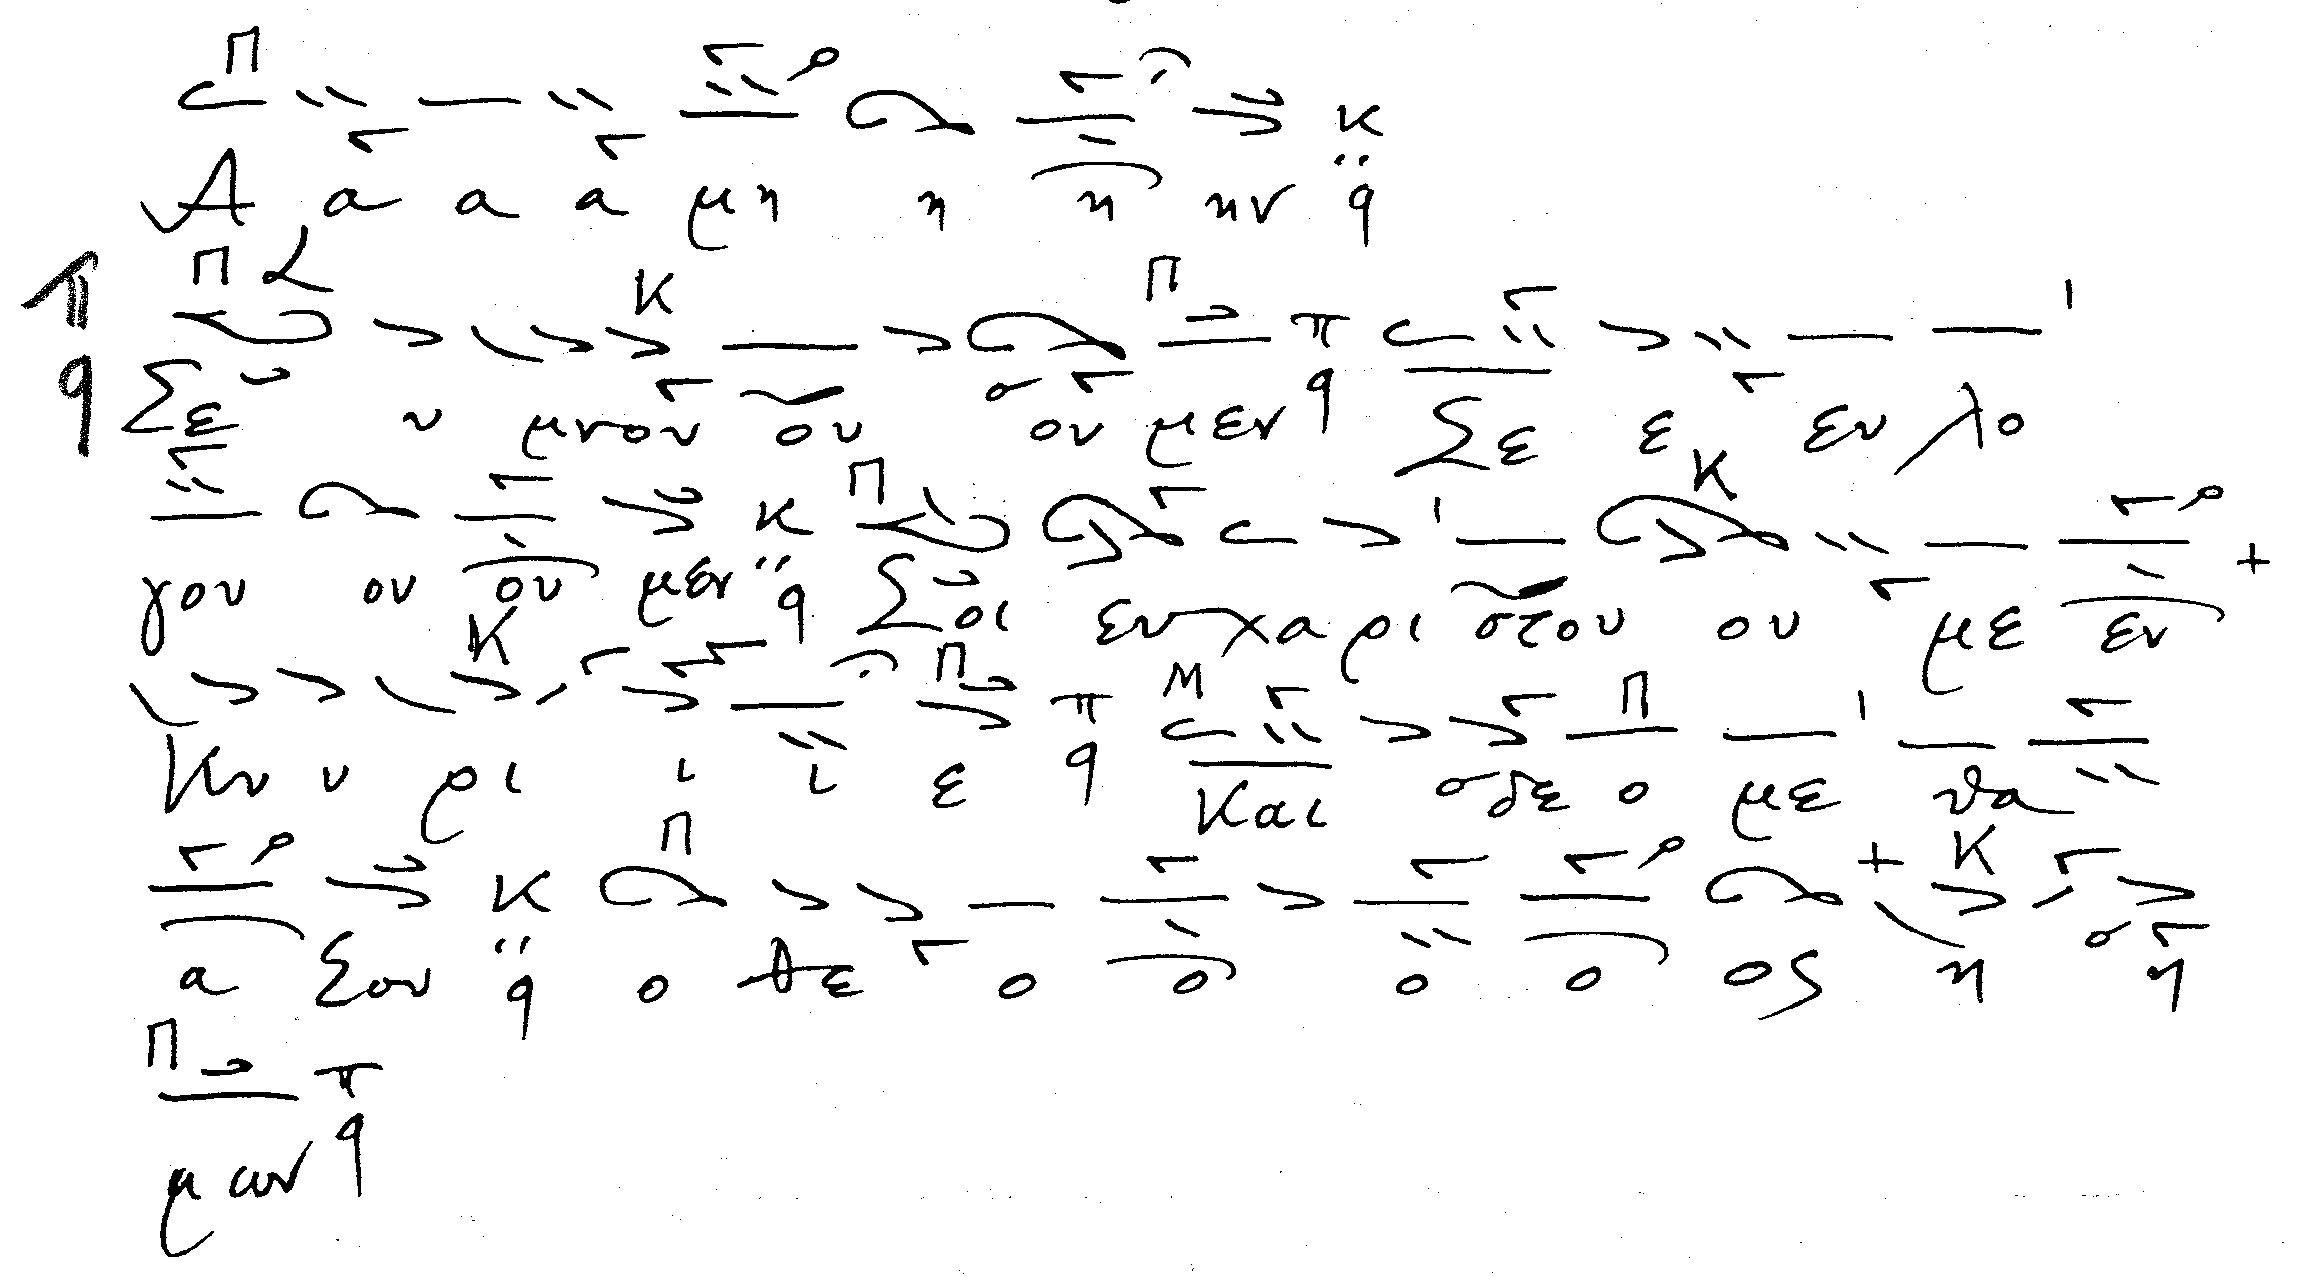 Α α α α μη η η ην
Σε υ μνου ου ου μεν Σε ε ευ λο
γου ου ου μεν Σοι ευχαρι στου ου με εν
Κυ υ ρι ι ι ε Και δε ο με θα
α σου ο Θε ο ο ο ο ος η η
μων